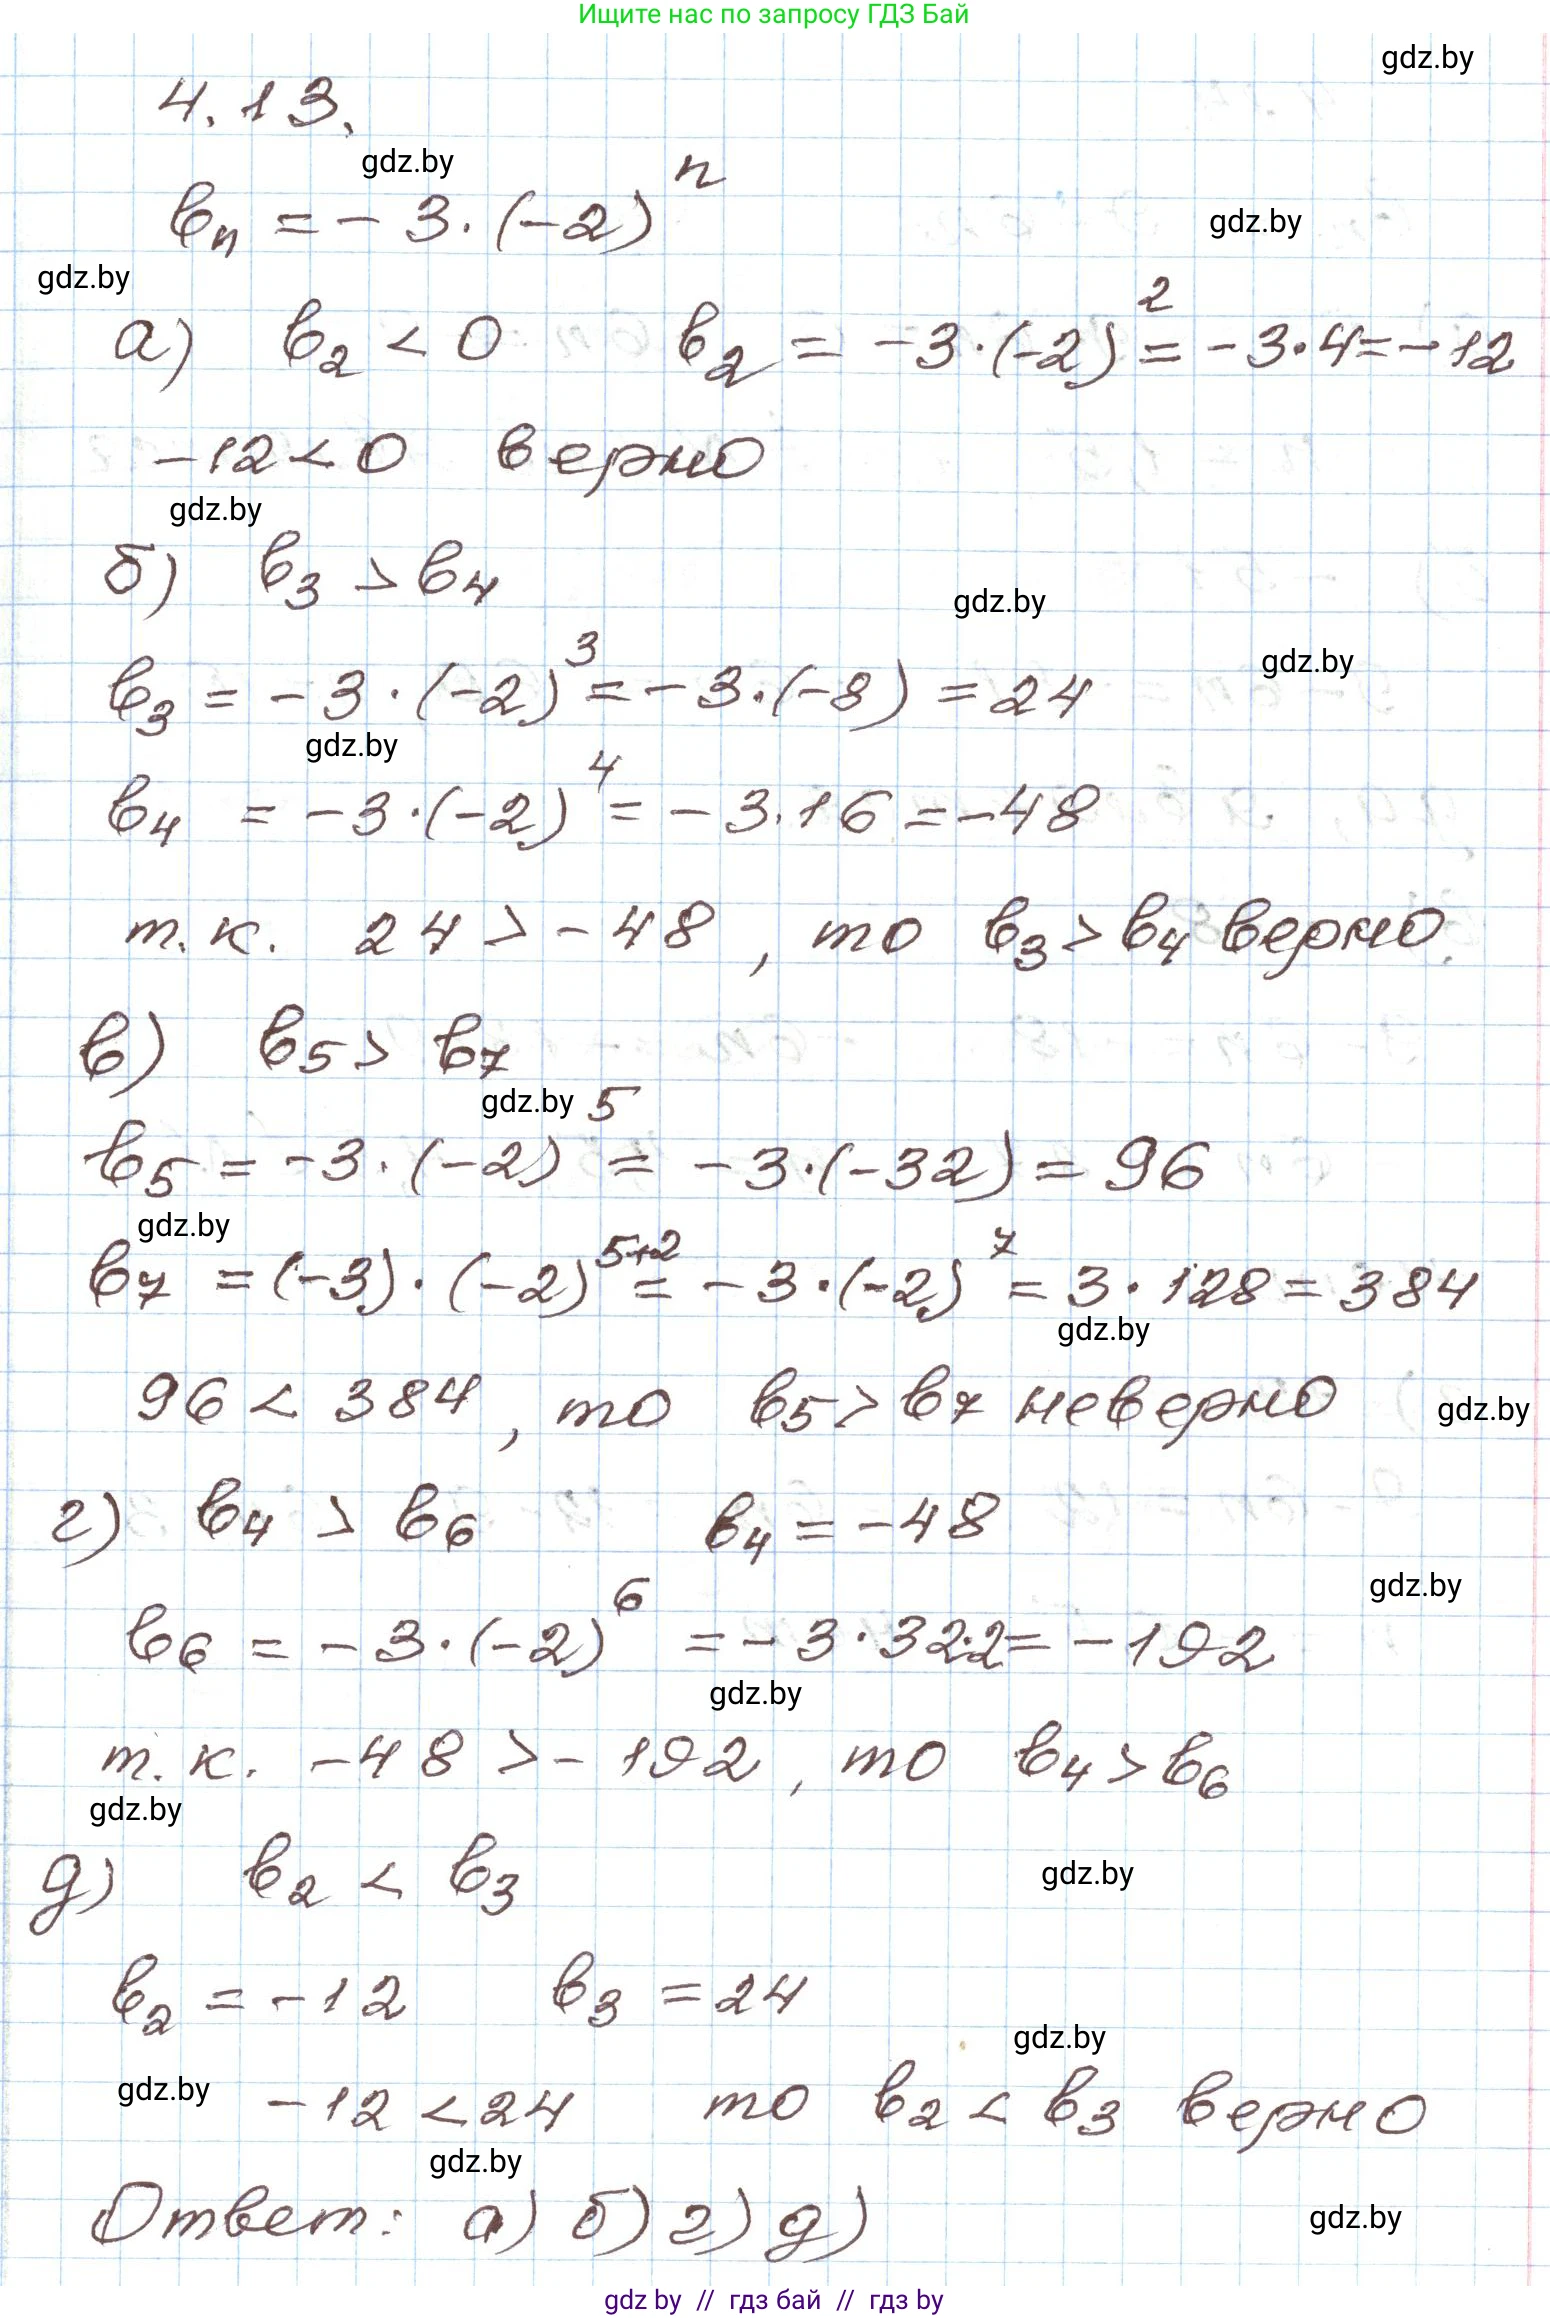 Ищите нас по запросу ГДЗ Бай
gdz.by
4.13.
gdz.by
bn = -3·(-2)^n
gdz.by
gdz.by
а) b2 < 0 b2 = -3·(-2)^2 = -3·4 = -12
-12 < 0 верно
gdz.by
б) b3 > b4
gdz.by
gdz.by
b3 = -3·(-2)^3 = -3·(-8) = 24
gdz.by
b4 = -3·(-2)^4 = -3·16 = -48
т.к. 24 > -48, то b3 > b4 верно.
в) b5 > b7
gdz.by
b5 = -3·(-2)^5 = -3·(-32) = 96
gdz.by
b7 = (-3)·(-2)^5+2 = -3·(-2)^7 = 3·128 = 384
gdz.by
96 < 384, то b5 > b7 неверно
gdz.by
г) b4 > b6 b4 = -48
gdz.by
b6 = -3·(-2)^6 = -3·32·2 = -192
gdz.by
т.к. -48 > -192, то b4 > b6
gdz.by
д) b2 < b3
gdz.by
b2 = -12 b3 = 24
gdz.by
gdz.by
-12 < 24 то b2 < b3 верно
gdz.by
Ответ: а) б) г) д)
gdz.by
gdz by // гдз бай // гдз by